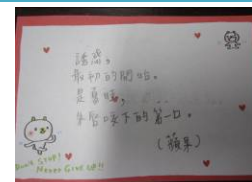 誘惑，
最初的開始。
是蛋糖，
未曾咬下的第一口。
（蘋果）
Don't STOP!
NEVER GIVE UP!!